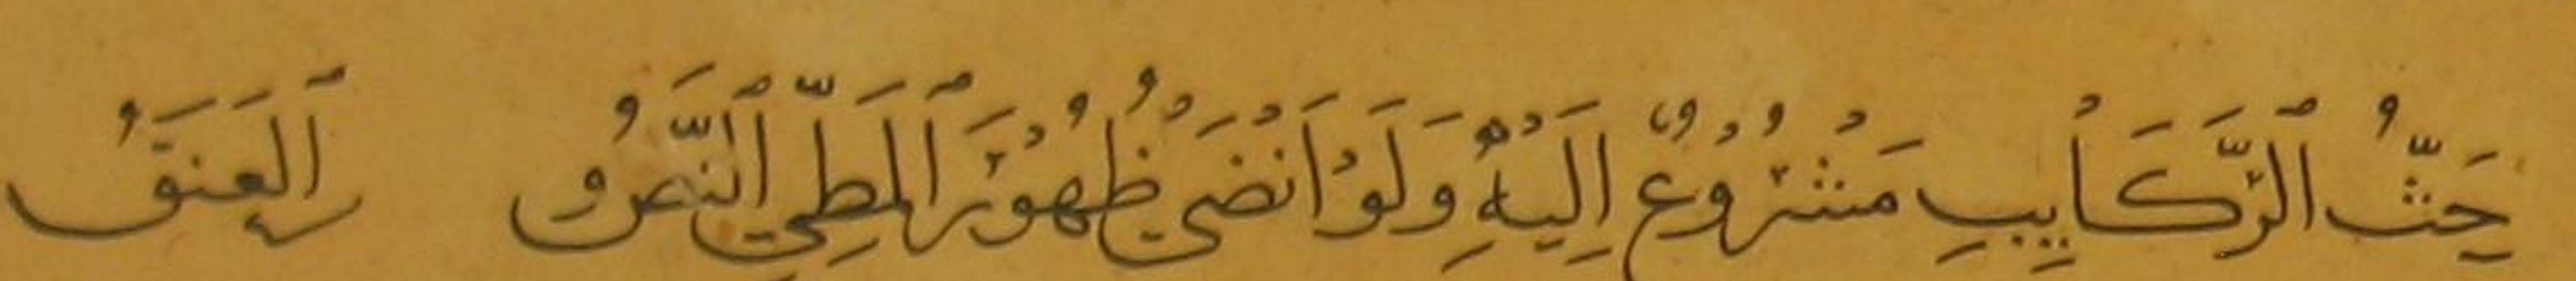 حَثُّ ٱلرَّكَايِبِ مَشْرُوعٌ إِلَيْهِ وَلَوْ أَنْضَى ظُهُوْرَ ٱلْمَطِيِّ ٱلنَّصُّ وَٱلْعَنَقُ